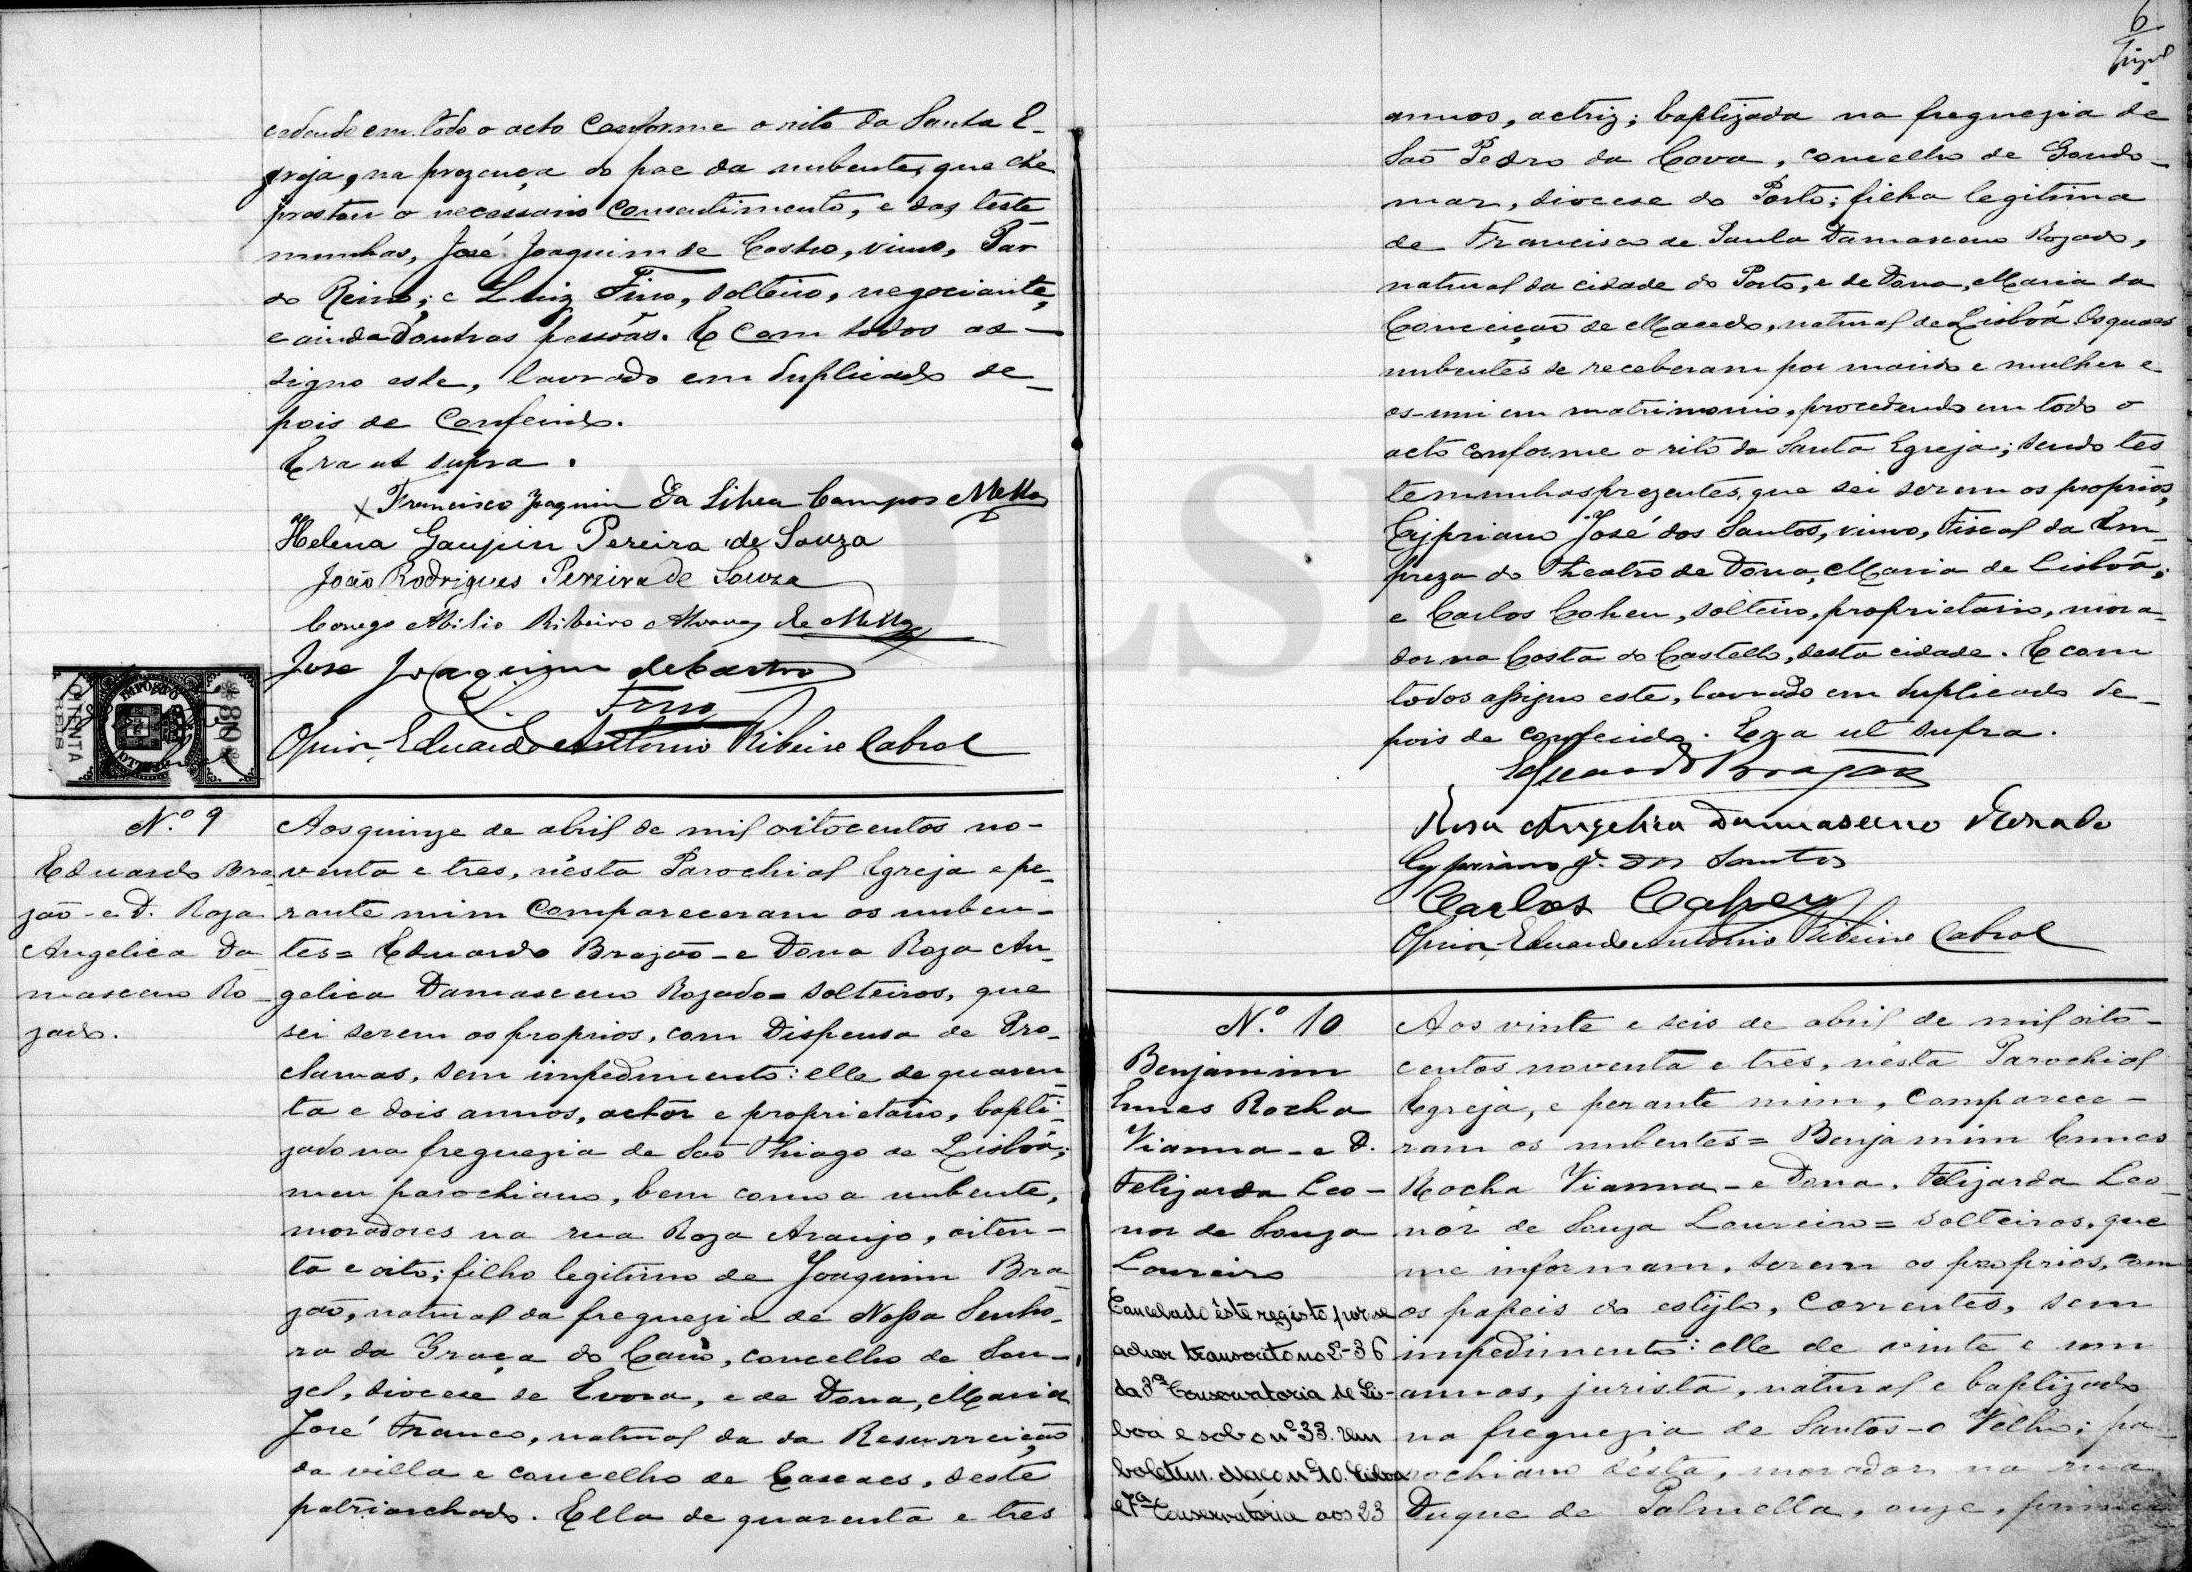 cedendo em todo o acto conforme o rito da Santa E-
greja, na prezença do pae da nubente, que lhe
prestou o necessario consentimento, e das teste-
munhas, José Joaquim de Castro, viuvo, Par
do Reino; e Luiz Fino, solteiro, negociante,
e ainda d'outras pessôas. E com todos as-
signo este, lavrado em duplicado de-
pois de conferido.
Era ut supra.
Francisco Joaquim da Silva Campos Mello
Helena Gaupin Pereira de Souza
João Rodrigues Pereira de Souza
Conego Abilio Ribeiro Alvares de Mello
José Joaquim de Castro
L. Fino
O Prior, Eduardo Antonio Ribeiro Cabral
IMPOSTO
80
OITENTA
REIS
N.º 9
Eduardo Bra-
zão - e D. Roza
Angelica Da-
masceno Ro-
zado.
Aos quinze de abril de mil oitocentos no-
venta e tres, n'ésta Parochial Egreja e pe-
rante mim compareceram os nuben-
tes = Eduardo Brazão - e Dona Roza An-
gelica Damasceno Rozado = solteiros, que
sei serem os proprios, com Dispensa de Pro-
clamas, sem impedimento: elle de quaren-
ta e dois annos, actor e proprietario, bapti-
zado na freguezia de São Thiago de Lisbôa;
meu parochiano, bem como a nubente,
moradores na rua Roza Araujo, oiten-
ta e oito; filho legitimo de Joaquim Bra-
zão, natural da freguezia de Nossa Senho-
ra da Graça do Cano, concelho de Sou-
zel, diocese de Evora, e de Dona, Maria
José Franco, natural da da Resurreição
da villa e concelho de Cascaes, deste
patriarchado. Ella de quarenta e tres
6
annos, actriz; baptizada na freguezia de
São Pedro da Cova, concelho de Gondo-
mar, diocese do Porto; filha legitima
de Francisco de Paula Damasceno Rozado,
natural da cidade do Porto, e de Dona, Maria da
Conceição de Macedo, natural de Lisbôa. Os quaes
nubentes se receberam por marido e mulher e
os uni em matrimonio, procedendo em todo o
acto conforme o rito da Santa Egreja; sendo tes
temunhas prezentes, que sei serem os proprios,
Cypriano José dos Santos, viuvo, Fiscal da Em-
preza do Theatro de Dona, Maria de Lisbôa;
e Carlos Cohen, solteiro, proprietario, mora-
dor na Costa do Castello, desta cidade. E com
todos assigno este, lavrado em duplicado de-
pois de conferido. Era ut supra.
Eduardo Brazão
Rosa Angelica Damasceno Rosado
Cypriano J. dos Santos
Carlos Cohen
O Prior, Eduardo Antonio Ribeiro Cabral
N.º 10
Benjamim
Ennes Rocha
Vianna - e D.
Felizarda Leo-
nor de Souza
Loureiro
Cancelado êste registo por se
achar transcrito no L-36
da 3ª Conservatoria de Lis-
boa e sob o nº 33. Vem
boletim. Maço nº 10. Lisboa
e 7ª Conservatória aos 23
Aos vinte e seis de abril de mil oito-
centos noventa e tres, n'ésta Parochial
Egreja, e perante mim, comparece-
ram os nubentes = Benjamim Ennes
Rocha Vianna - e Dona. Felizarda Leo-
nôr de Souza Loureiro = solteiros, que
me informam, serem os proprios, com
os papeis do estylo, correntes, sem
impedimento: elle de vinte e um
annos, jurista, natural e baptizado
na freguezia de Santos-o Velho; pa-
rochiano désta, morador na rua
Duque de Palmella, onze, primei